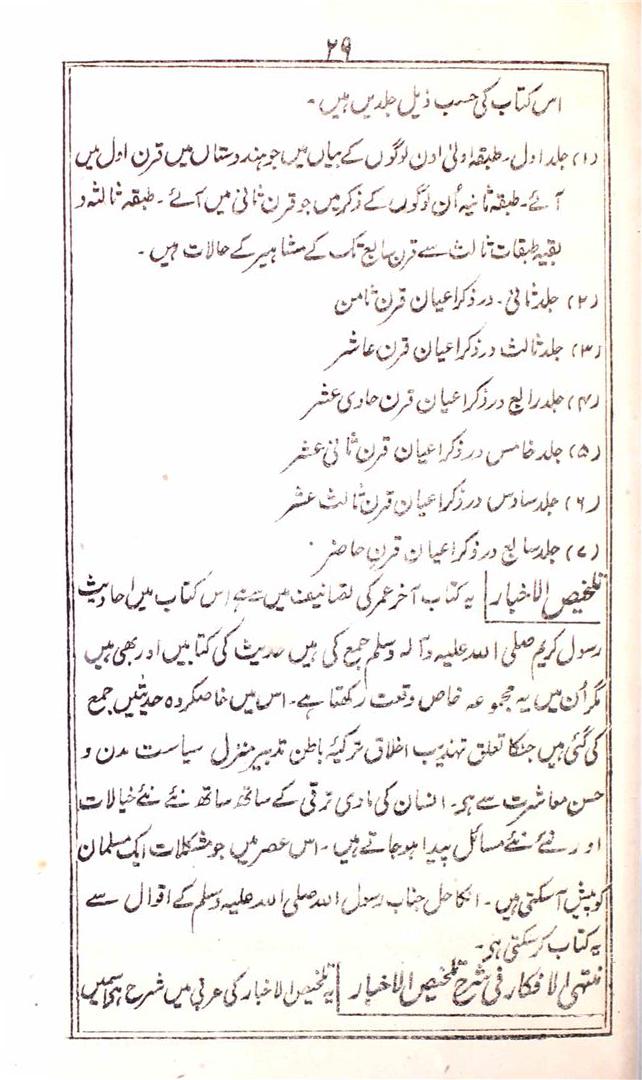 ۲۹
اس کتاب کی حسب ذیل جلدیں ہیں۔
(۱) جلد اول۔ طبقہ اولیٰ اون لوگوں کے بیاں میں جو ہندوستاں میں قرن اول میں
آئے۔ طبقہ ثانیہ اُن لوگوں کے ذکر میں جو قرن ثانی میں آئے۔ طبقہ ثالثہ و
بقیہ طبقات ثالث سے قرن سابع تک کے مشاہیر کے حالات ہیں۔
(۲) جلد ثانی۔ در ذکر اعیان قرن ثامن
(۳) جلد ثالث در ذکر اعیان قرن عاشر
(۴) جلد رابع در ذکر اعیان قرن حادی عشر
(۵) جلد خامس در ذکر اعیان قرن ثانی عشر
(۶) جلد سادس در ذکر اعیان قرن ثالث عشر
(۷) جلد سابع در ذکر اعیان قرن حاضر۔
تلخیص الاخبار یہ کتاب آخر عمر کی تصانیف میں سے ہے اس کتاب میں احادیث
رسول کریم صلی اللہ علیہ وآلہ وسلم جمع کی ہیں حدیث کی کتابیں اور بھی ہیں
مگر اُن میں یہ مجموعہ خاص وقعت رکھتا ہے۔ اس میں خاصکر وہ حدیثیں جمع
کی گئی ہیں جنکا تعلق تہذیب اخلاق تزکیۂ باطن تدبیر منزل سیاست مدن و
حسن معاشرت سے ہو۔ انسان کی مادی ترقی کے ساتھ ساتھ نئے نئے خیالات
اور نئے نئے مسائل پیدا ہو جاتے ہیں۔ اس عصر میں جو مشکلات ایک مسلمان
کو پیش آسکتی ہیں۔ انکا حل جناب رسول اللہ صلی اللہ علیہ وسلم کے اقوال سے
یہ کتاب کر سکتی ہو۔
منتہی الافکار فی شرح تلخیص الاخبار یہ تلخیص الاخبار کی عربی میں شرح ہی اسمیں